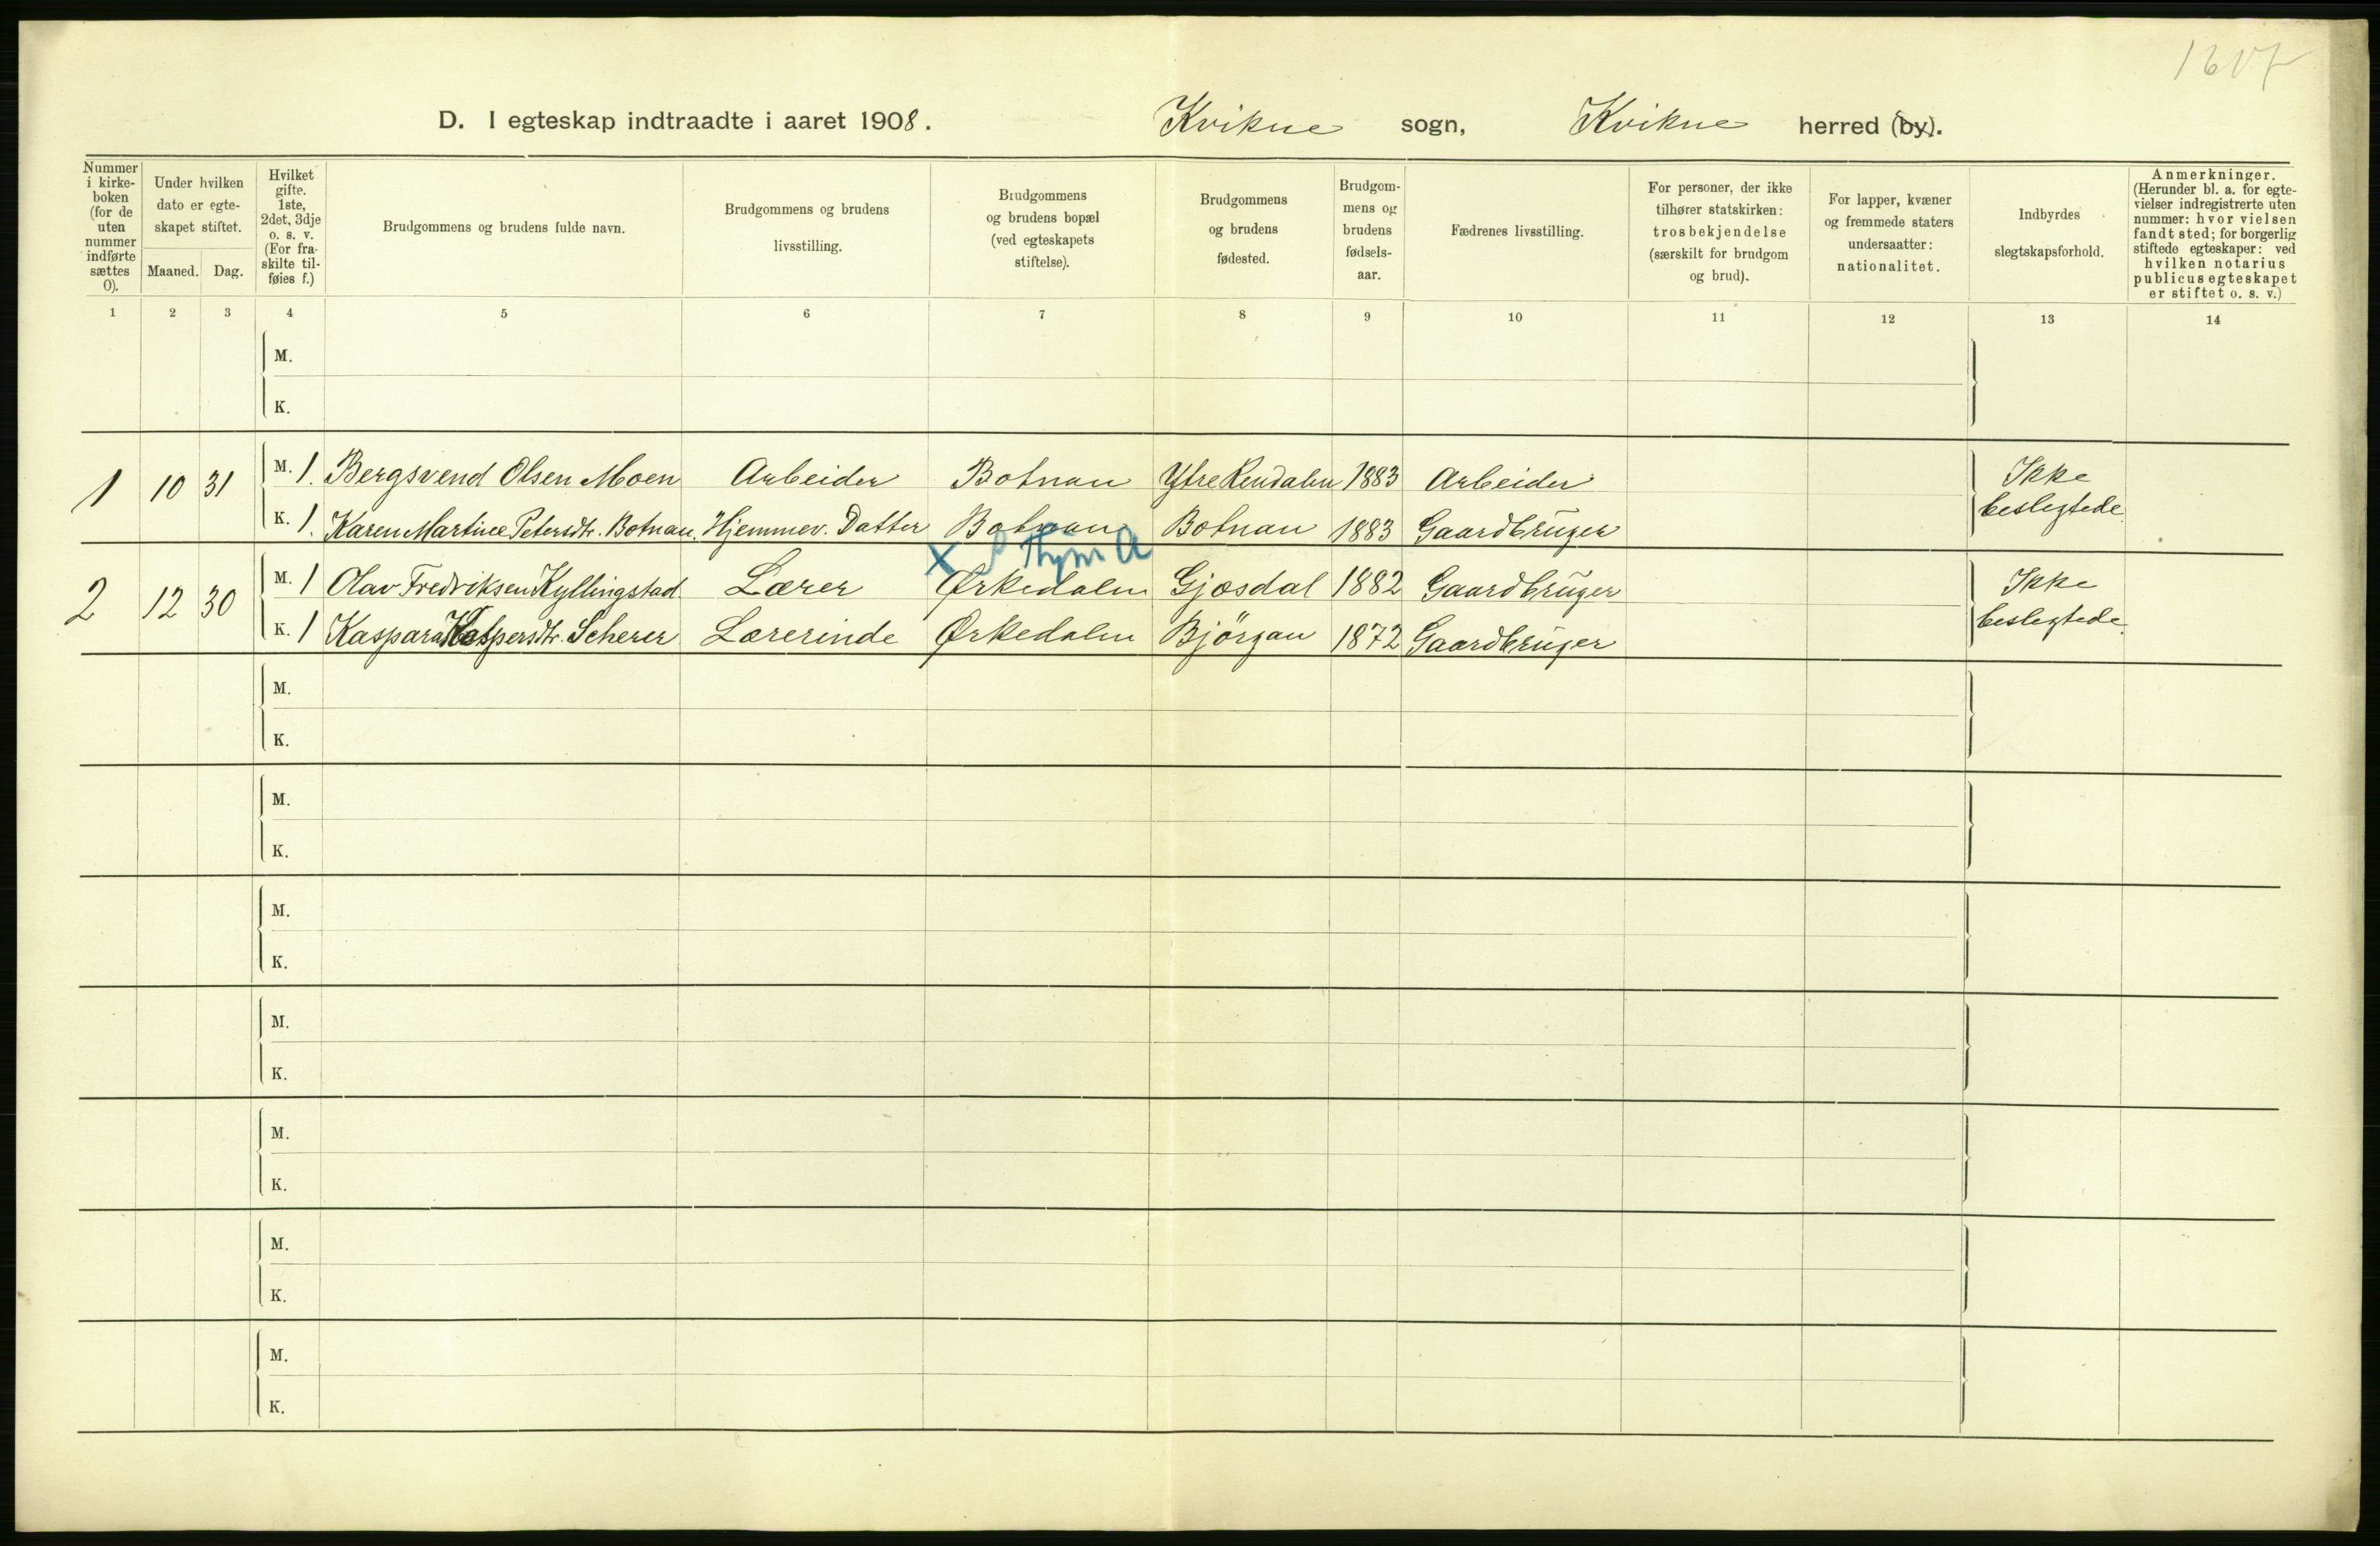 D. I egteskap indtraadte i aaret 1908.
Kvikne sogn, Kvikne herred (by).
Nummer i kirke-boken (for de uten nummer indførte sættes 0).
Under hvilken dato er egte-skapet stiftet.
Maaned. Dag.
Hvilket gifte. 1ste, 2det, 3dje o. s. v. (For fra-skilte til-føies f.)
Brudgommens og brudens fulde navn.
Brudgommens og brudens livsstilling.
Brudgommens og brudens bopæl (ved egteskapets stiftelse).
Brudgommens og brudens fødested.
Brudgom-mens og brudens fødsels-aar.
Fædrenes livsstilling.
For personer, der ikke tilhører statskirken: trosbekjendelse (særskilt for brudgom og brud).
For lapper, kvæner og fremmede staters undersaatter: nationalitet.
Indbyrdes slegtskapsforhold.
Anmerkninger. (Herunder bl. a. for egte-vielser indregistrerte uten nummer: hvor vielsen fandt sted; for borgerlig stiftede egteskaper: ved hvilken notarius publicus egteskapet er stiftet o. s. v.)
1 2 3 4 5 6 7 8 9 10 11 12 13 14
M.
K.
1 10 31 M. 1. Bergsvend Olsen Moen Arbeider Botnan Ytre Rendalen 1883 Arbeider Ikke
K. 1. Karen Martine Petersdtr. Botnan. Hjemmev. Datter Botnan Botnan 1883 Gaardbruger beslegtede.
X
2 12 30 M. 1 Olav Fredriksen Kyllingstad. Lærer Ørkedalen Gjæsdal 1882 Gaardbruger Ikke
K. 1 Kaspara Kaspersdtr. Scherer Lærerinde Ørkedalen Bjørgan 1872 Gaardbruger beslegtede.
M.
K.
M.
K.
M.
K.
M.
K.
M.
K.
M.
K.
M.
K.